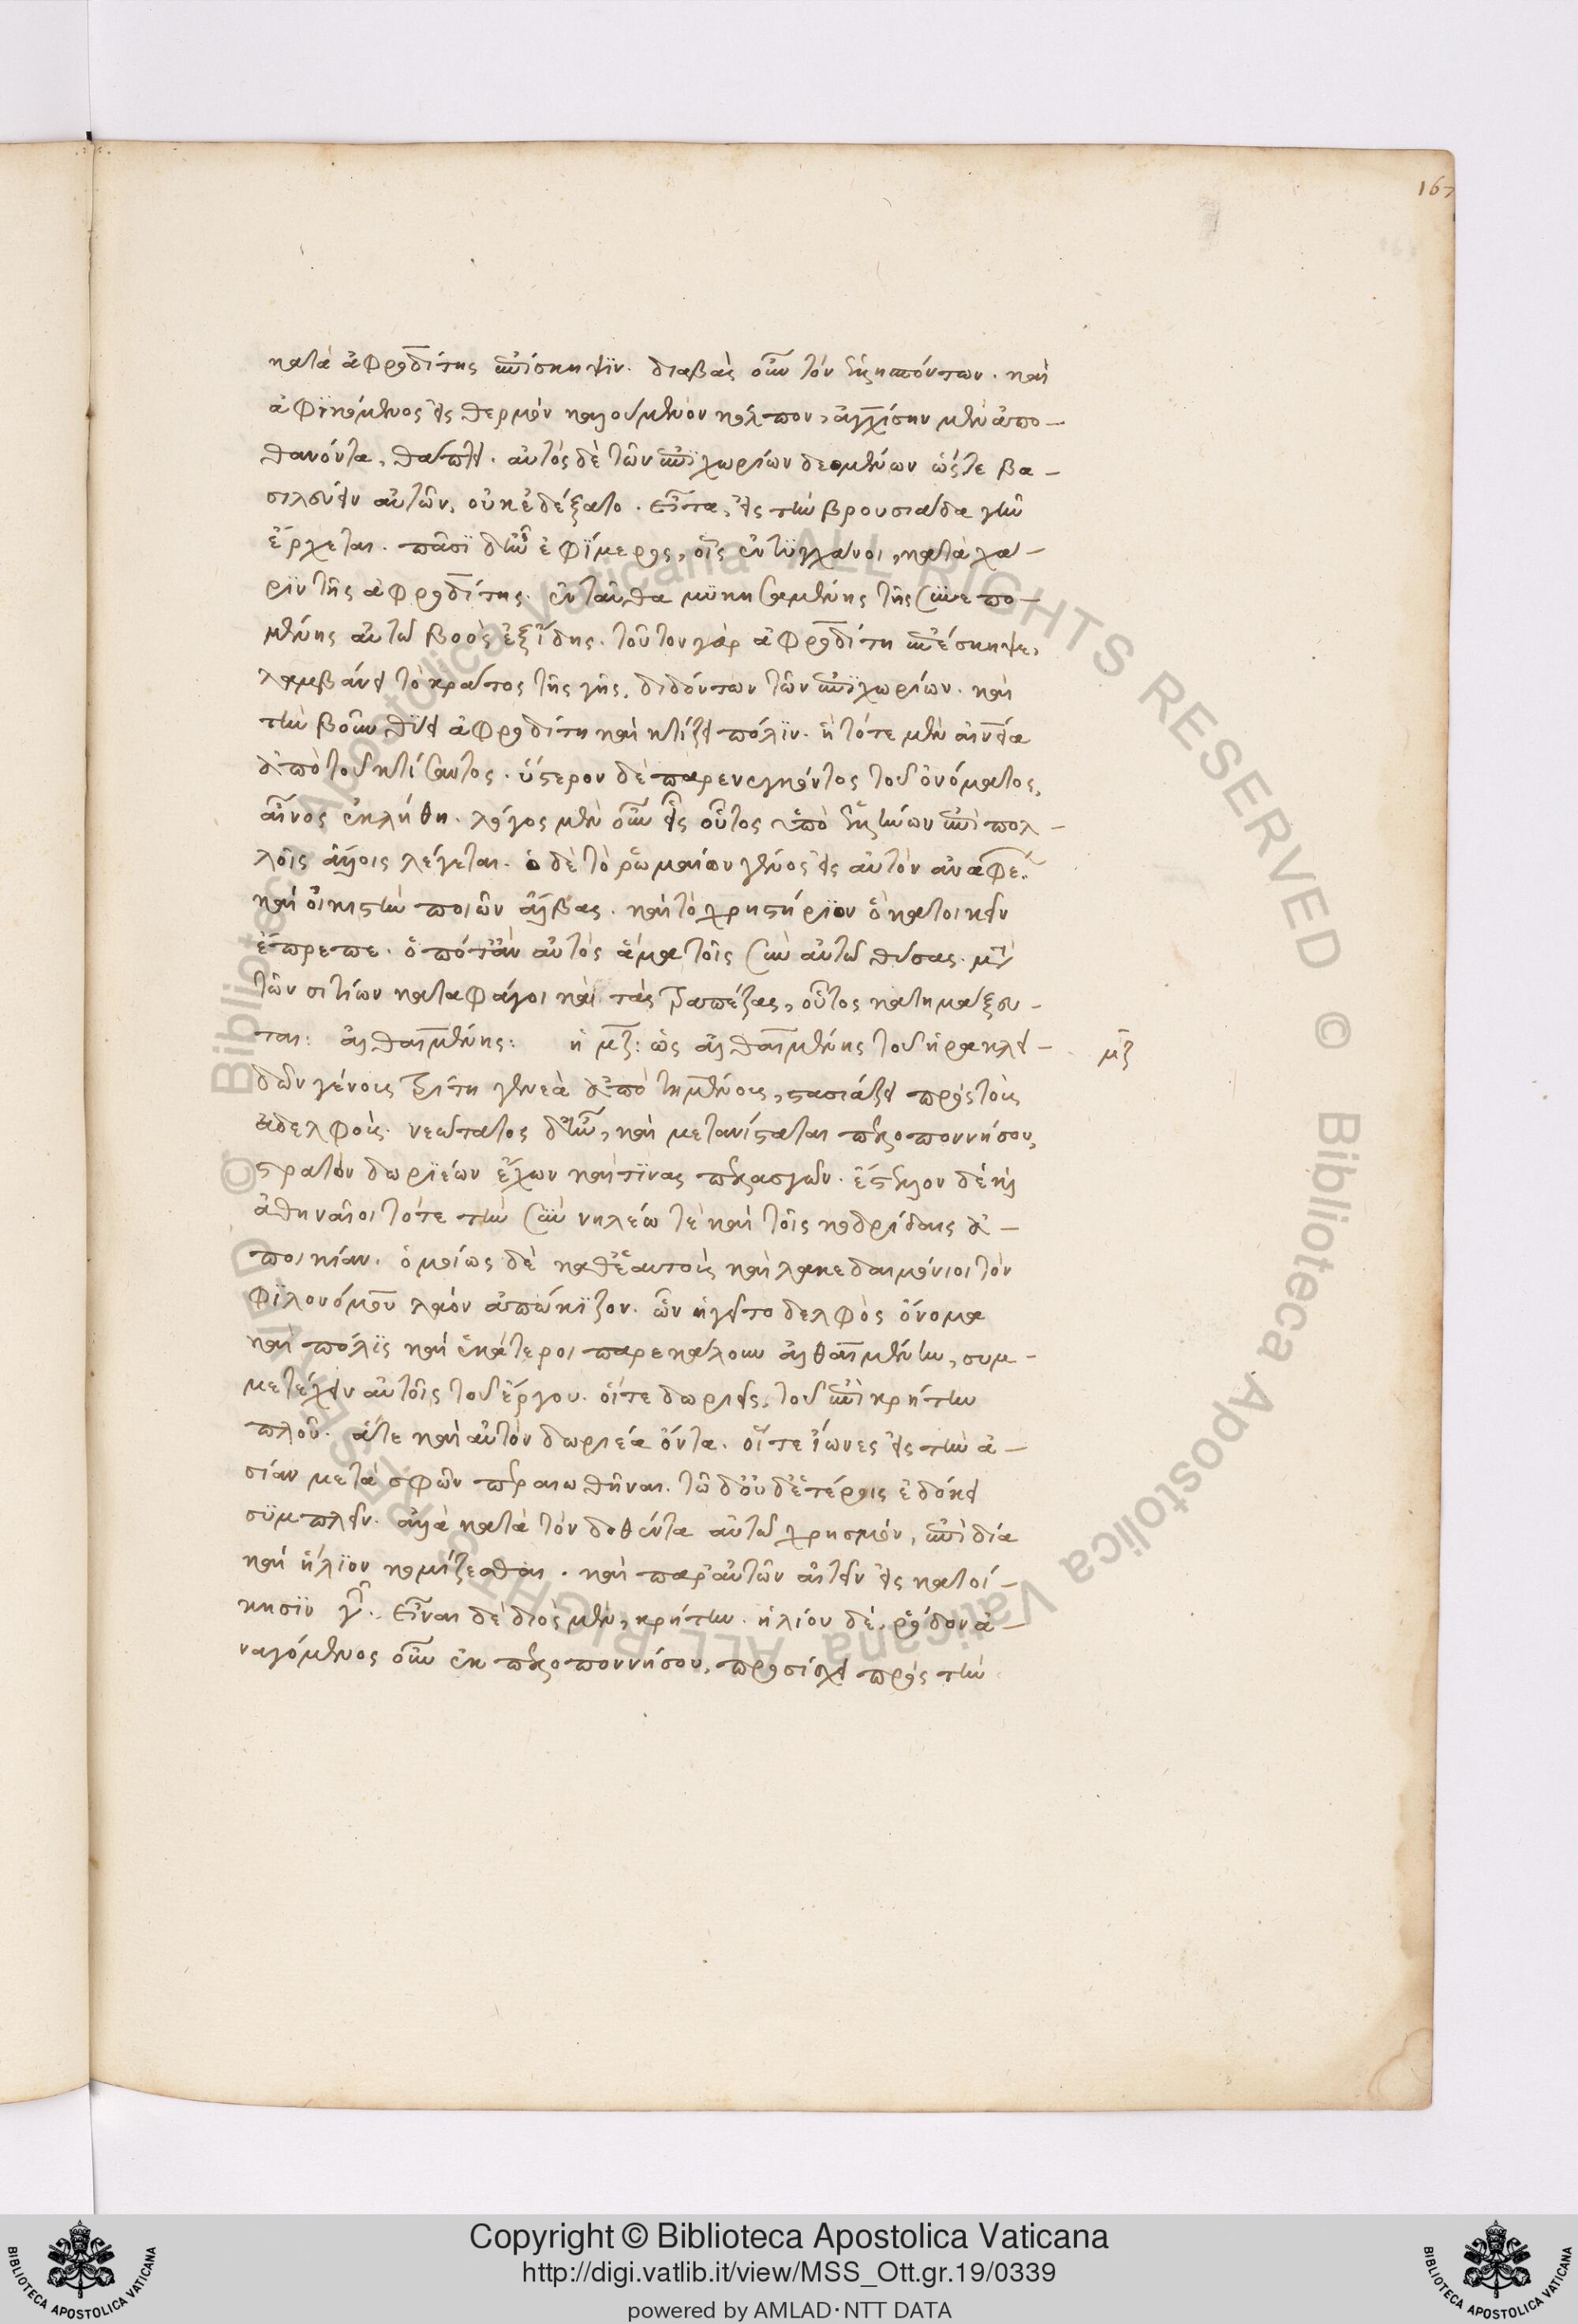 167
κατὰ ἀφροδίτης ἐπίσκηψϊν. διαβὰς οὖν τὸν ἑλλήσποντον. καὶ
ἀφϊκόμενος εἰς θερμὸν καλούμενον κόλπον, ἀγχίσην μὲν ἀπο-
θανόντα, θάπτει. αὐτὸς δὲ τῶν ἐπϊχωρίων δεομένων ὥστε βα-
σιλεύειν αὐτῶν, οὐκ ἐδέξατο. εἶτα, εἰς τὴν βρουσιάδα γῆν
ἔρχεται. πᾶσϊ δ' ἦν ἐφίμερος, οἷς ἐντϋγχάνοι, κατὰ χά-
ρϊν τῆς ἀφροδίτης. ἐνταῦθα μϋκησαμένης τῆς συνεπο-
μένης αὐτῶ βοὸς ἐξ ἴδης. τοῦτον γὰρ ἀφροδίτη ἐπέσκηψε,
λαμβάνει τὸ κράτος τῆς γῆς, διδόντων τῶν ἐπϊχωρίων. καὶ
τὴν βοῦν θύει ἀφροδίτη καὶ κτίζει πόλϊν. ἣ τότε μὲν αἰνεία
ἀπὸ τοῦ κτίσαντος. ὕστερον δὲ παρενεγκόντος τοῦ ὀνόματος,
αἶνος ἐκλήθη. λόγος μὲν οὖν εἷς οὗτος ὑπὸ ἑλλήνων ἐπὶ πολ-
λοῖς ἄλλοις λέγεται. ὁ δὲ τὸ ῥωμαίων γένος εἰς αὐτὸν ἀναφέ..
καὶ οἰκιστὴν ποιῶν ἄλβας. καὶ τὸ χρηστήριον ὃ κατοικεῖν
ἔπρεπε. ὁπόταν αὐτὸς ἅμα τοῖς σὺν αὐτῶ θύσας. μετὰ
τῶν σιτίων καταφάγοι καὶ τὰς τραπέζας, οὗτος κατημάξευ-
ται: ἀλθαιμένης: ἡ μζ: ὡς ἀλθαιμένης τοῦ ἡρακλει-
μζ
δῶν γένους τρίτη γενεὰ ἀπὸ τημένους, στασιάζει πρὸς τοὺς
ἀδελφούς. νεώτατος δ' ἦν, καὶ μετανίσταται πελοποννήσου,
στρατὸν δωρϊέων ἔχων καὶ τϊνας πελασγῶν. ἔστελλον δὲ καὶ
ἀθηναῖοι τότε τὴν σὺν νηλέω τὲ καὶ τοῖς κοδρίδαις ἀ-
ποικίαν. ὁμοίως δὲ καθ' ἑαυτοὺς καὶ λακεδαιμόνιοι τὸν
φϊλονόμου λαὸν ἀπώκϊζον. ὧν ἡγεῖτο δελφὸς ὄνομα
καὶ πόλϊς καὶ ἑκάτεροι παρεκάλουν ἀλθαιμένην, συμ-
μετέχειν αὐτοῖς τοῦ ἔργου. οἵτε δωριεῖς, τοῦ ἐπὶ κρήτην
πλοῦ. ἅτε καὶ αὐτὸν δωριέα ὄντα. οἵ τε ἴωνες εἰς τὴν ἀ-
σίαν μετὰ σφῶν περαιωθῆναι. τῶ δ' οὐδ' ἑτέροις ἐδόκει
συμπλεῖν. ἀλλὰ κατὰ τὸν δοθέντα αὐτῶ χρησμὸν, ἐπὶ δία
καὶ ἥλϊον κομίζεσθαι. καὶ παρ' αὐτῶν αἰτεῖν εἰς κατοί-
κησϊν γῆν. εἶναι δὲ διὸς μὲν, κρήτην. ἡλίου δὲ, ῥόδον ἀ-
ναγόμενος οὖν ἐκ πελοποννήσου, προσίσχει πρὸς τὴν
© Biblioteca Apostolica Vaticana ALL RIGHTS RESERVED
Copyright © Biblioteca Apostolica Vaticana
http://digi.vatlib.it/view/MSS_Ott.gr.19/0339
powered by AMLAD·NTT DATA
BIBLIOTECA APOSTOLICA VATICANA
BIBLIOTECA APOSTOLICA VATICANA